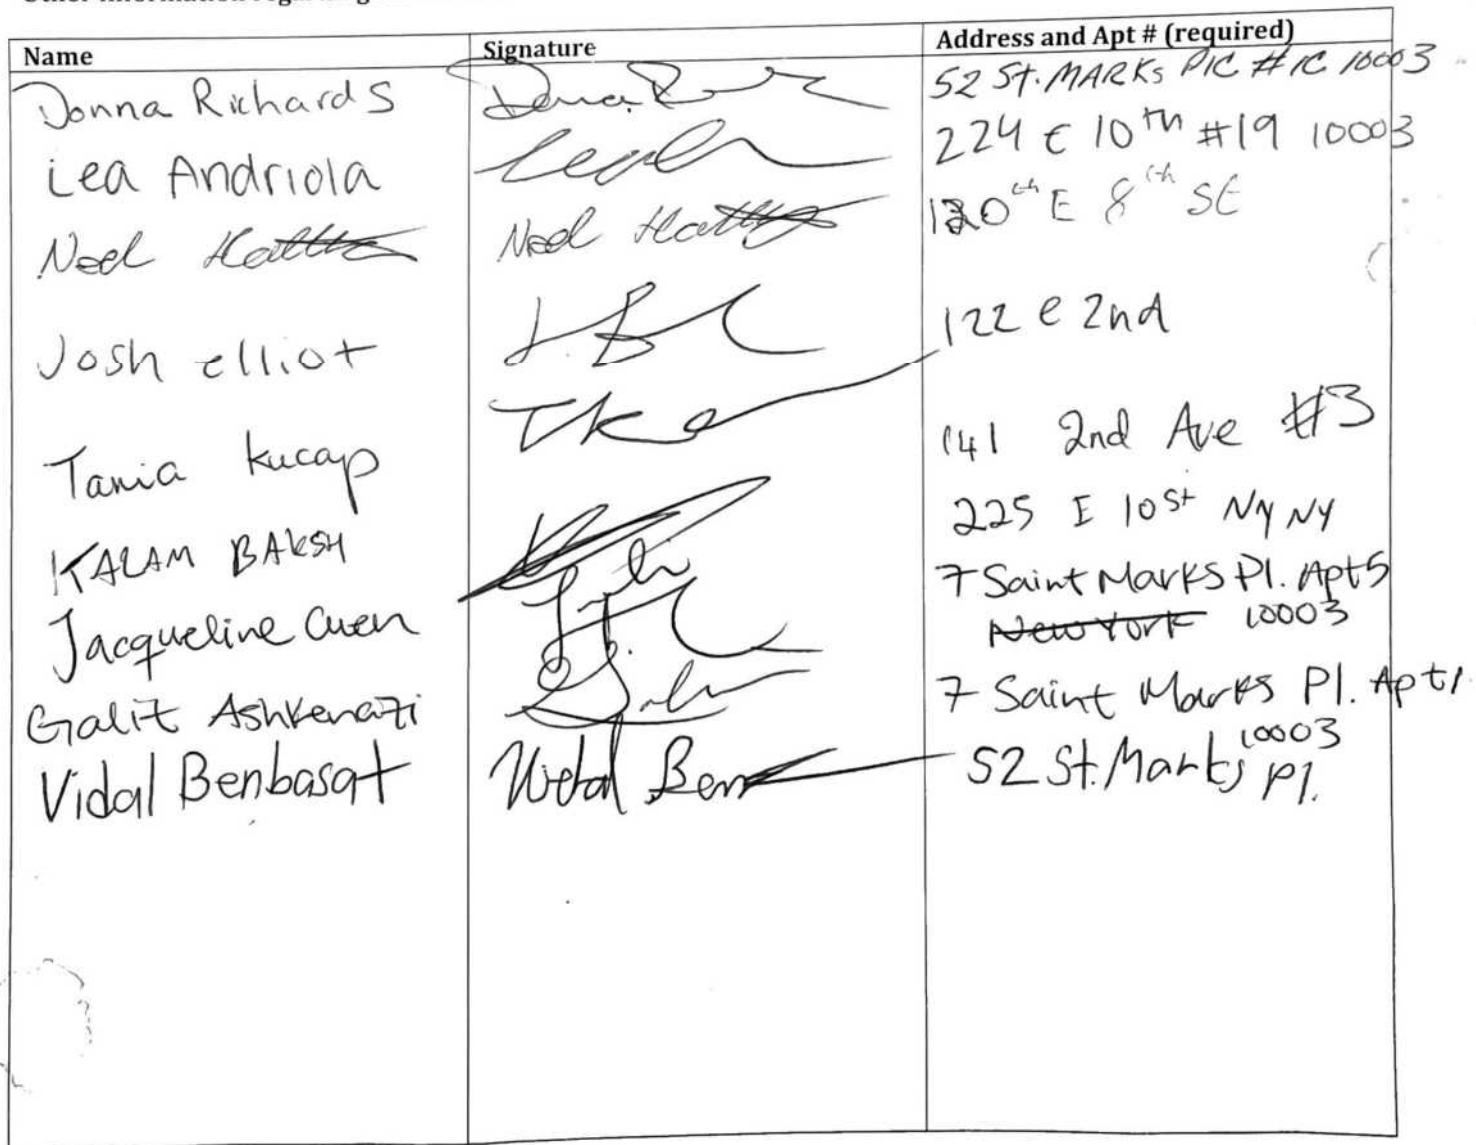 Name Signature Address and Apt # (required)
Donna Richards 52 St. MARKS PlC #1C 10003
Lea Andriola 224 E 10th #19 10003
Noel Noel 120th E 8th St
Josh elliot 122 e 2nd
Tania Kucap TK 141 2nd Ave #3
KALAM BAKSH 225 E 10 St NY NY
Jacqueline Cuen 7 Saint Marks Pl. Apt 5
New York 10003
Galit Ashkenazi 7 Saint Marks Pl. Apt 1
10003
Vidal Benbasat Vidal Ben 52 St. Marks
Pl.